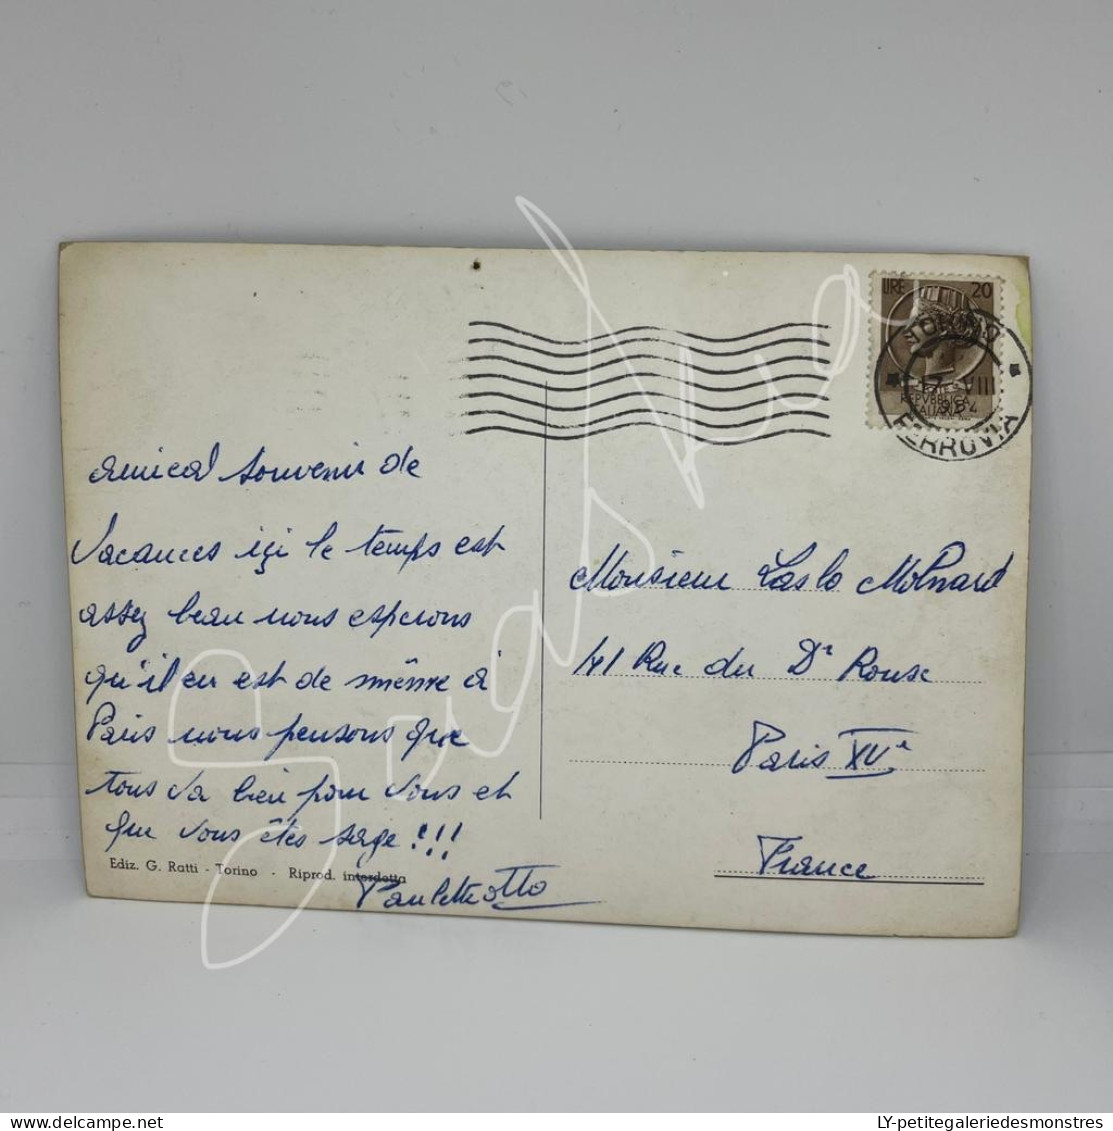 LIRE 20
TORINO
17 - VIII
1954
REPVBBLICA
ITALIANA
FERROVIA
amical souvenir de
Vacances içi le temps est
assez beau nous esperons
qu'il en est de même à
Paris nous pensons que
tous va bien pour vous et
que vous êtes sage!!!
Ediz. G. Ratti - Torino · Riprod. interdetta
Paulette Otto
Monsieur Laslo Molnard
41 Rue du Dr Rouse
Paris XVe
France
delcampe.net
LY-petitegaleriedesmonstres